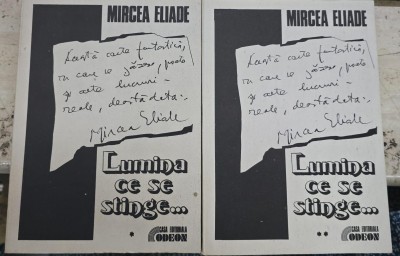 MIRCEA ELIADE
Această carte fantastică,
în care se găsesc, poate
și alte lucruri
reale, deocamdată
Mircea Eliade
Lumina
ce se
stinge...
*
CASA EDITORIALĂ
ODEON
MIRCEA ELIADE
Această carte fantastică,
în care se găsesc, poate
și alte lucruri
reale, deocamdată
Mircea Eliade
Lumina
ce se
stinge...
**
CASA EDITORIALĂ
ODEON